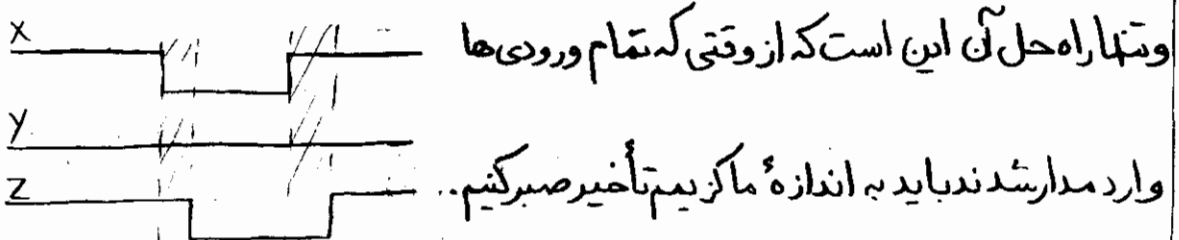 وتنها راه حل آن این است که از وقتی که تمام ورودی‌ها
وارد مدار شدند باید به اندازهٔ ماکزیمم تأخیر صبر کنیم..
X
Y
Z